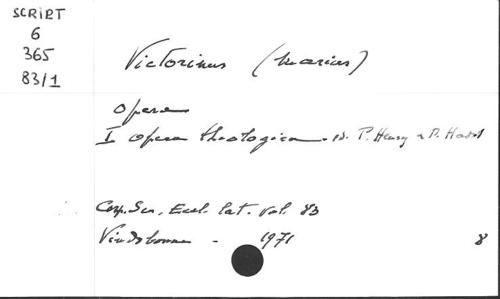 SCRIPT
6
365
83/1
Victorinus (Marius)
Opera
I opera theologica. ed. P. Henry & P. Hadot
Corp. Scr. Eccl. lat. vol. 83
Vindobonae - 1971
8